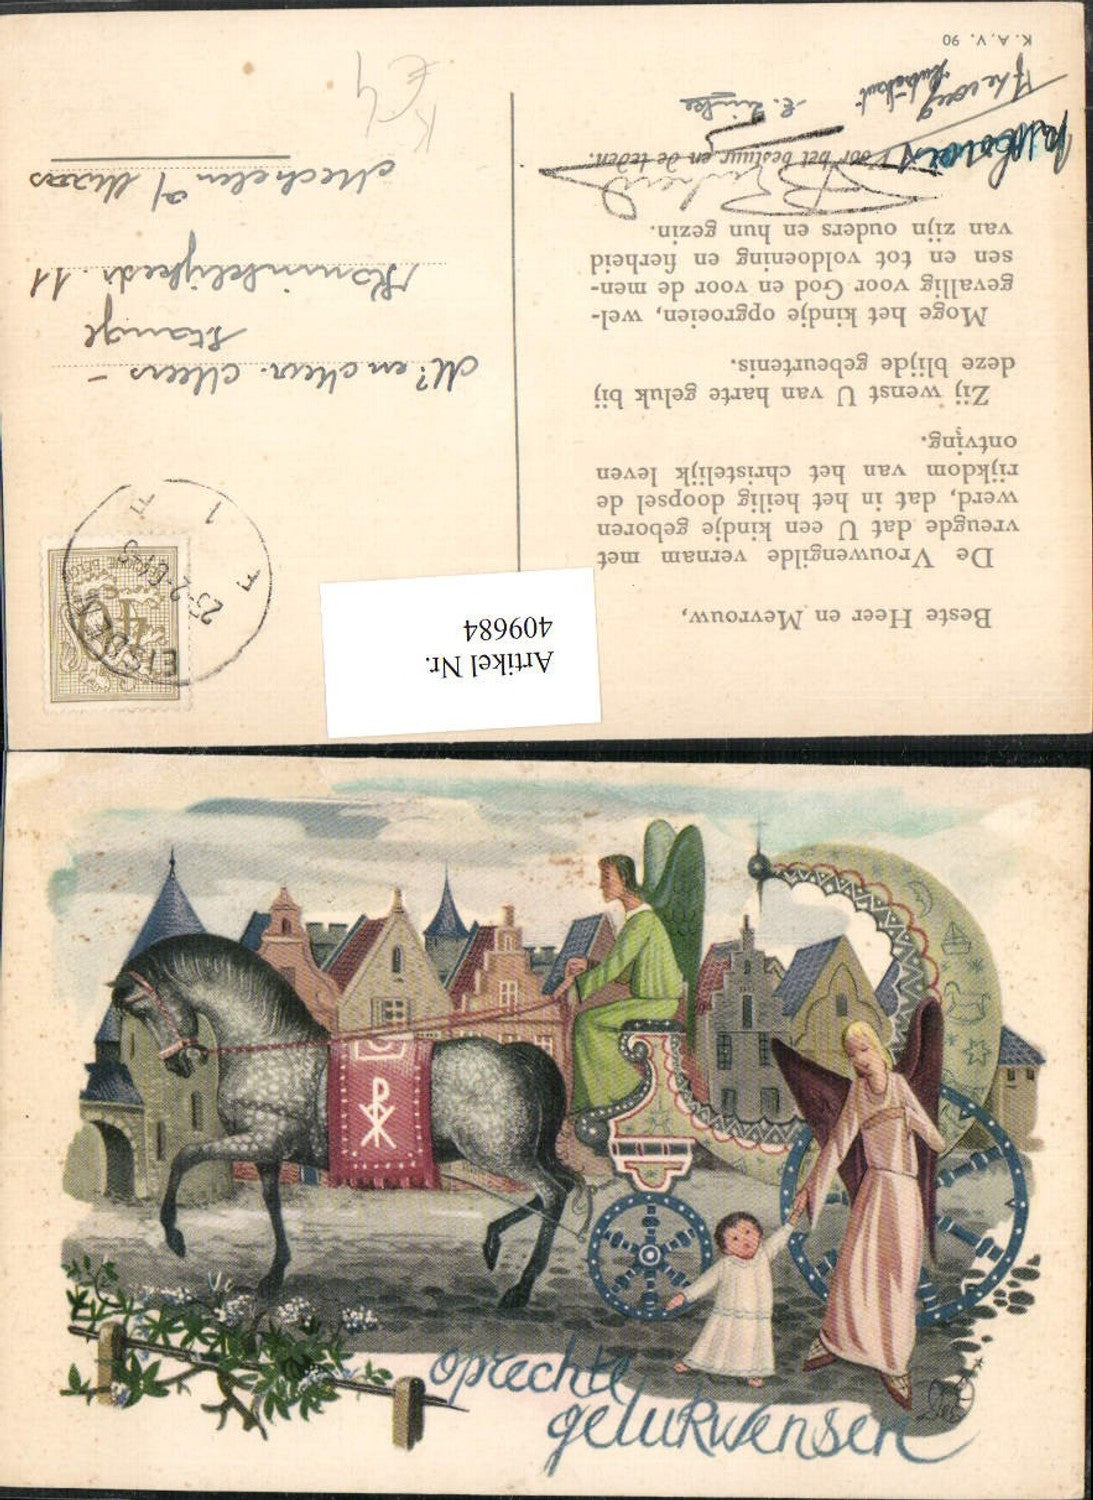 Beste Heer en Mevrouw,
De Vrouwengilde vernam met
vreugde dat U een kindje geboren
werd, dat in het heilig doopsel de
rijkdom van het christelijk leven
ontving.
Zij wenst U van harte geluk bij
deze blijde gebeurtenis.
Moge het kindje opgroeien, wel-
gevallig voor God en voor de men-
sen en tot voldoening en fierheid
van zijn ouders en hun gezin.
Voor het bestuur en de leden.
K. A. V. 90
EISDEN
1
40
Mr en Mevr. Meers -
Koninkelijkestr. 11
Mechelen a/ Maas
Artikel Nr.
409684
oprechte
gelukwensen